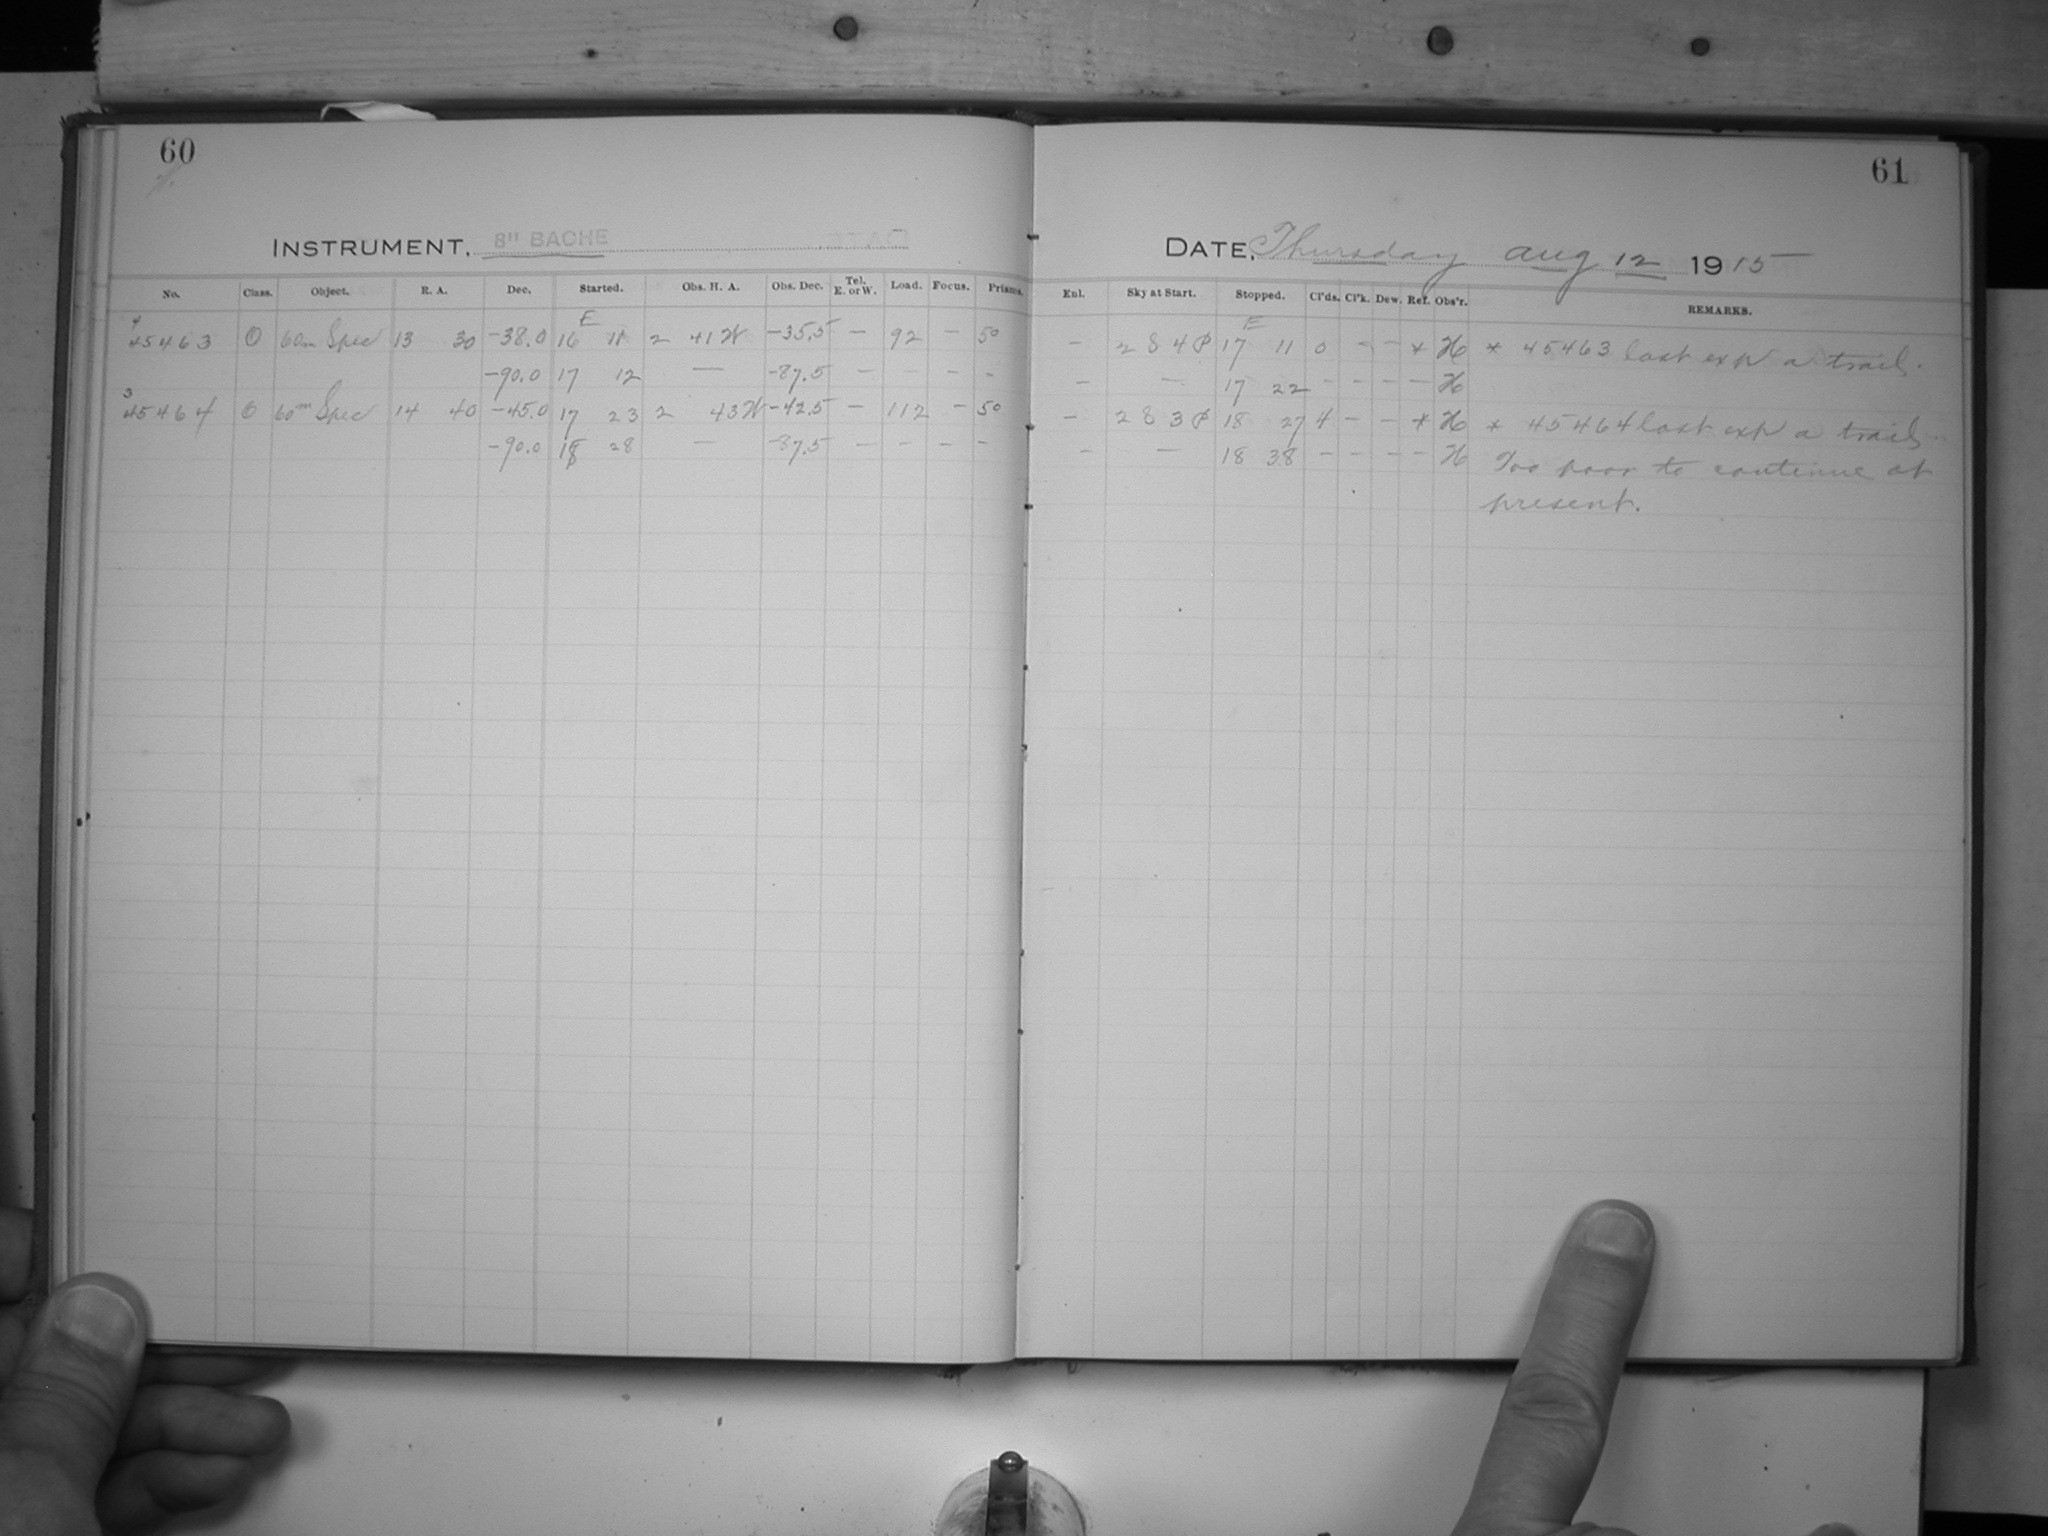 60
61
INSTRUMENT, 8" BACHE
DATE, Thursday Aug 12 1915
No. Class. Object. R. A. Dec. Started. Obs. H. A. Obs. Dec. Tel. E. or W. Load. Focus. Prisms.
Enl. Sky at Start. Stopped. Cl'ds. Cl'k. Dew. Ref. Obs'r. REMARKS.
E
E
4
45463 O 60m Spec 13 30 -38.0 16 11 2 41 W -35.5 - 92 - 50
- 284P 17 11 0 - - * H * 45463 last exp a trail.
-90.0 17 12 — -87.5 - - - -
- — 17 22 - - - - H
3
45464 O 60m Spec 14 40 -45.0 17 23 2 43 W -42.5 - 112 - 50
- 283P 18 27 4 - - * H * 45464 last exp a trail.
-90.0 18 28 — -87.5 - - - -
- — 18 38 - - - - H Too poor to continue at
present.